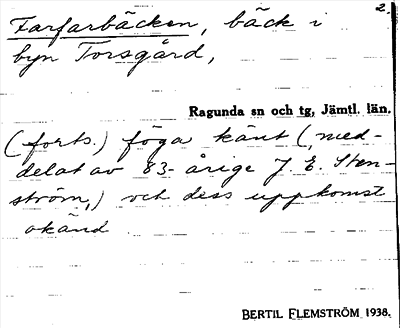 2.
Farfarbäcken, bäck i
byn Torsgård,
Ragunda sn och tg, Jämtl. län.
(forts.) föga känt (med-
delat av 83-årige J. E. Sten-
ström,) och dess uppkomst
okänd
BERTIL FLEMSTRÖM 1938.